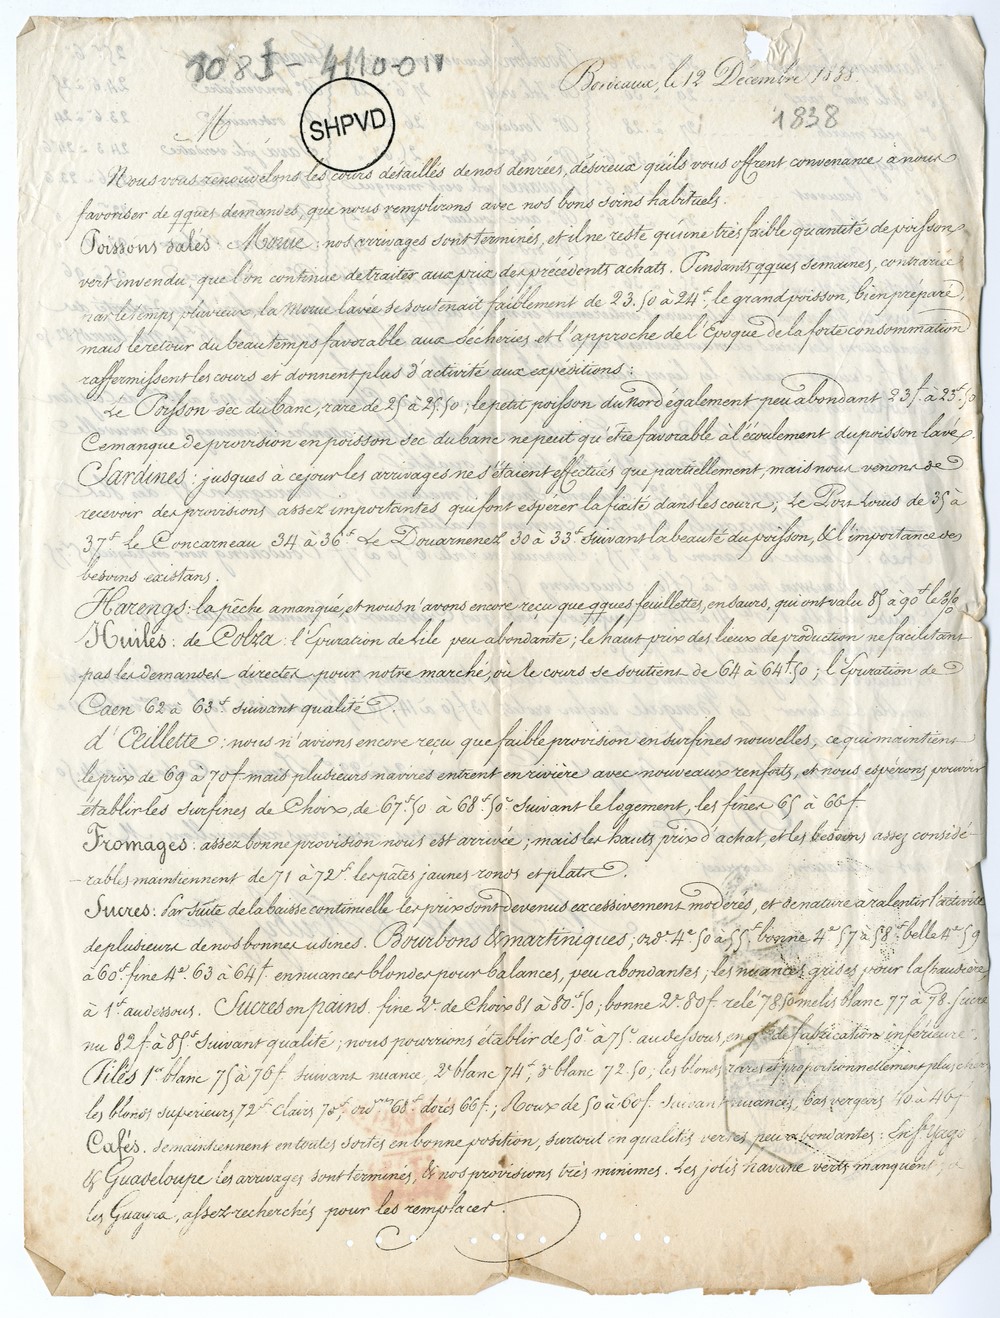 108 J - 4110-011
Bordeaux, le 12 Décembre 1838.
1838
SHPVD
M
Nous vous renouvelons les cours détaillés de nos denrées, désireux qu'ils vous offrent convenance à nous
favoriser de qques demandes, que nous remplirons avec nos bons soins habituels.
Poissons salés. Morue: nos arrivages sont terminés, et il ne reste qu'une très faible quantité de poisson
vert invendu, que l'on continue de traiter aux prix des précédents achats. Pendants qques semaines, contrariée
par le temps pluvieux, la Morue lavée se soutenait faiblement de 23.50 à 24f, le grand poisson, bien préparé,
mais le retour du beau temps favorable aux Sécheries et l'approche de l'Epoque de la forte consommation
raffermissent les cours et donnent plus d'activité aux expéditions:
Le Poisson sec du banc, rare de 25 à 25.50; le petit poisson du Nord également peu abondant 23f. à 23f.50
Ce manque de provision en poisson sec du banc ne peut qu'être favorable à l'écoulement du poisson lavé.
Sardines: jusques à ce jour les arrivages ne s'étaient effectués que partiellement, mais nous venons de
recevoir des provisions assez importantes qui font espérer la fixité dans les cours; Le Port Louis de 35 à
37f Le Concarneau 34 à 36f Le Douarnenez 30 à 33f suivant la beauté du poisson, & l'importance des
besoins existans.
Harengs: la pêche a manqué, et nous n'avons encore reçu que qques feuillettes, en saurs, qui ont valu 85 à 90f le
Huiles: de Colza: l'Epuration de Lile peu abondante; le haut prix des lieux de production ne facilitant
pas les demandes directes pour notre marché, où le cours se soutient de 64 à 64f50; l'Epuration de
Caen 62 à 63f suivant qualité.
d'Œillette: nous n'avions encore reçu que faible provision en surfines nouvelles, ce qui maintient
le prix de 69 à 70f mais plusieurs navires entrent en rivière avec nouveaux renforts, et nous espérons pouvoir
établir les surfines de Choix, de 67f50 à 68f50c suivant le logement, les fines 65 à 66f.
Fromages: assez bonne provision nous est arrivée; mais les hauts prix d'achat, et les besoins assez considé-
-rables maintiennent de 71 à 72f les pâtes jaunes ronds et plats.
Sucres: Par suite de la baisse continuelle les prix sont devenus excessivement modérés, et de nature à ralentir l'activité
de plusieurs de nos bonnes usines. Bourbons & martiniques; ordre 4e 50 à 55f. bonne 4e 57 à 58f. belle 4e 59
à 60f. fine 4e 63 à 64f. en nuances blondes pour balances, peu abondantes; les nuances grises pour la chaudière,
à 1f. au dessous. Sucres en pains. fine 2e de Choix 81 à 80f.50; bonne 2e 80f. relé 78.50 melis blanc 77 à 78. Sucre
nu 82f. à 85f suivant qualité; nous pourrions établir de 50c à 75c au dessous, en qté de fabrication inférieure.
Pilés 1er blanc 75 à 76f. suivant nuance, 2e blanc 74f, 3e blanc 72.50; les blonds rares et proportionnellement plus chers
les blonds supérieurs, 72f Clairs 70f, ordres 68f dorés 66f; Roux de 50 à 60f. suivant nuances, bas vergeois 40 à 46f
Cafés. se maintiennent en toutes sortes en bonne position, surtout en qualités vertes peu abondantes: Les St. Yago
& Guadeloupe les arrivages sont terminés, & nos provisions très minimes. Les jolis havane verts manquent
les Guayra, assez recherchés pour les remplacer.